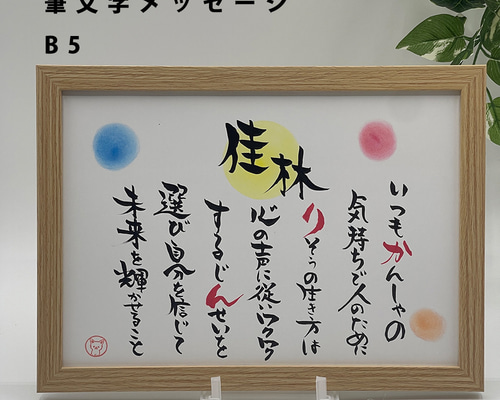 筆文字メッセージ
B5
佳林
いつもかんしゃの
気持ちで人のために
りそうの生き方は
心の声に従いワクワク
するじんせいを
選び自分を信じて
未来を輝かせること